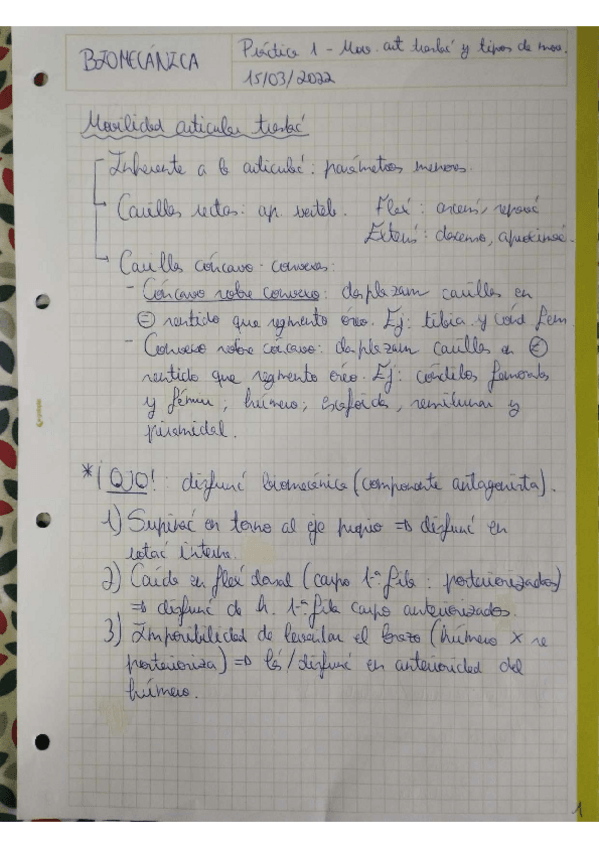 BIOMECÁNICA
Práctica 1 - Mov. art traslac y tipos de mov.
15/03/2022
Movilidad articular traslac
Inherente a la articulac: parámetros menores.
Carillas rectas: ap. verteb. Flex: ascens, separac
Extens: descenso, aproximac.
Carillas cóncavo-convexas:
- Cóncavo sobre convexo: desplazam carillas en
⊜ sentido que segmento óseo. Ej: tibia y cónd fem.
- Convexo sobre cóncavo: desplazam carillas en
sentido que segmento óseo. Ej: cóndilos femorales
y fémur; húmero; escafoides, semilunar y
piramidal.
*¡OJO!: disfunc biomecánica (componente antagonista).
1) Supinac en torno al eje propio => disfunc en
rotac interna.
2) Caída en flex dorsal (carpo 1ª fila: posteriorizados)
=> disfunc de h. 1ª fila carpo anteriorizados.
3) Imposibilidad de levantar el brazo (húmero x se
posterioriza) => les/disfunc en anterioridad del
húmero.
1